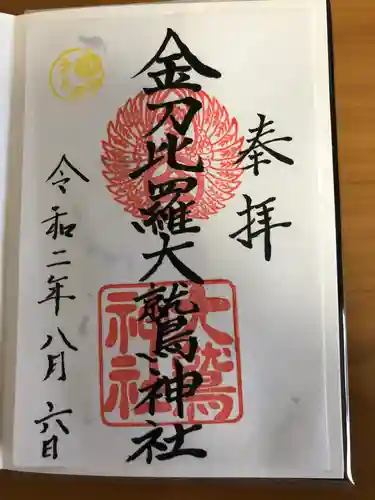 奉拝
金刀比羅大鷲神社
大鷲神社
令和二年八月六日